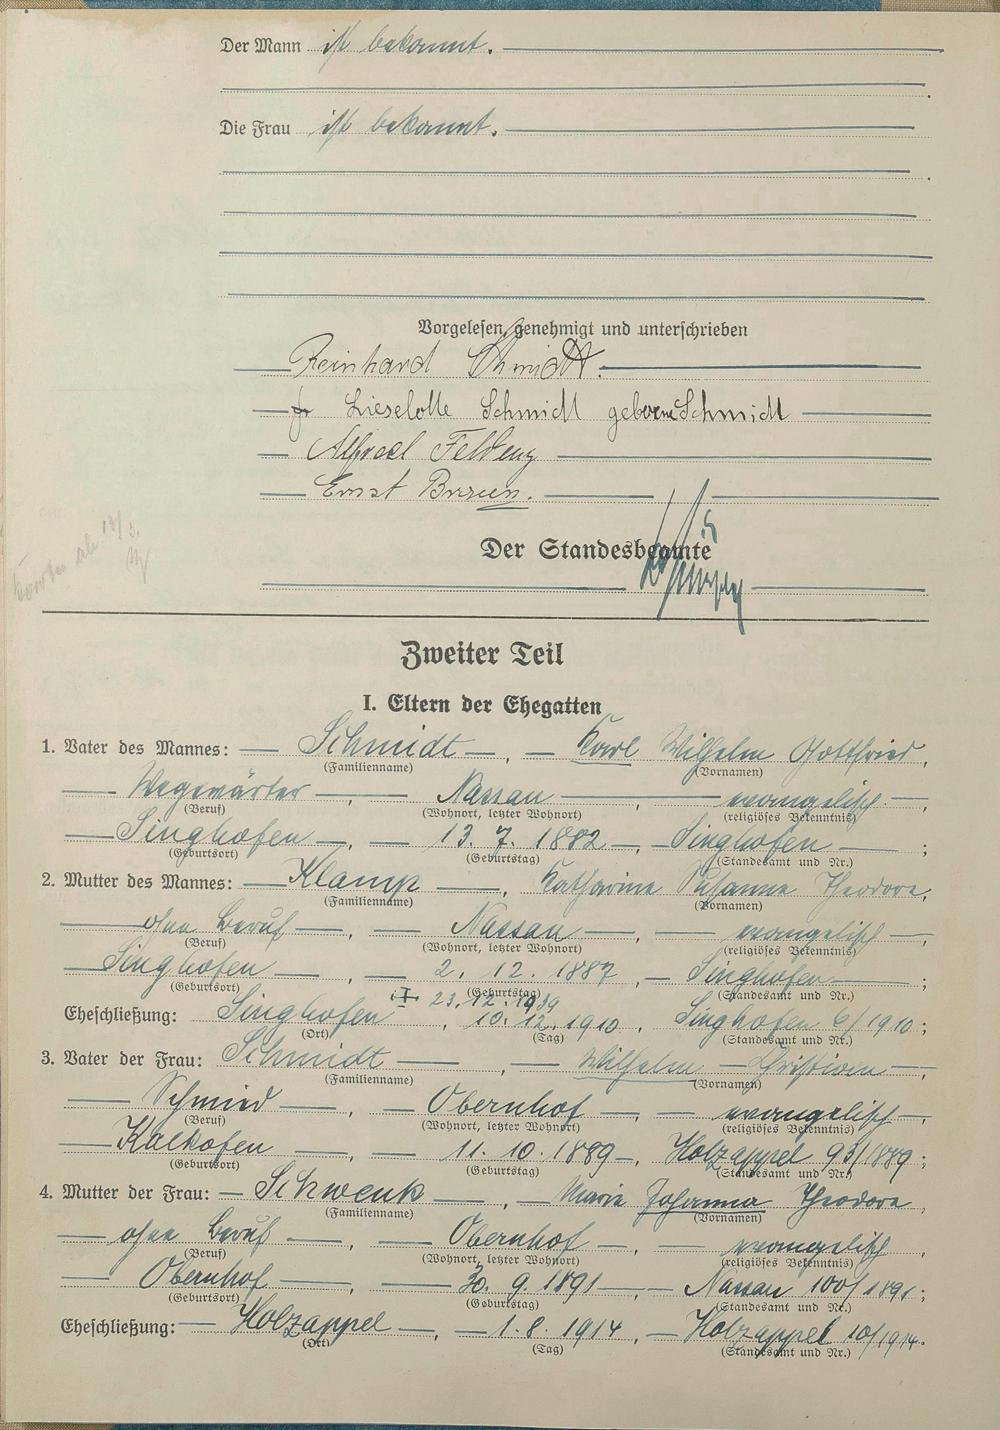 Der Mann ist bekannt.
Die Frau ist bekannt.
Vorgelesen, genehmigt und unterschrieben
Reinhard Schmidt.
Lieselotte Schmidt geborene Schmidt
Alfred
Ernst
Der Standesbeamte
Zweiter Teil
I. Eltern der Ehegatten
1. Vater des Mannes: Schmidt, Karl Wilhelm Gottfried,
(Familienname) (Vornamen)
Wegewärter, Nassau, evangelisch,
(Beruf) (Wohnort, letzter Wohnort) (religiöses Bekenntnis)
Singhofen, 13. 7. 1882, Singhofen;
(Geburtsort) (Geburtstag) (Standesamt und Nr.)
2. Mutter des Mannes: Klamp, Katharine Susanne Theodore,
(Familienname) (Vornamen)
ohne Beruf, Nassau, evangelisch,
(Beruf) (Wohnort, letzter Wohnort) (religiöses Bekenntnis)
Singhofen, 2. 12. 1887, Singhofen
(Geburtsort) (Geburtstag) (Standesamt und Nr.)
23. 12. 1939
Eheschließung: Singhofen, 10. 12. 1910, Singhofen 6/1910;
(Ort) (Tag) (Standesamt und Nr.)
3. Vater der Frau: Schmidt, Wilhelm Christian,
(Familienname) (Vornamen)
Schmied, Obernhof, evangelisch,
(Beruf) (Wohnort, letzter Wohnort) (religiöses Bekenntnis)
Kalkofen, 11. 10. 1889, Holzappel 95/1889;
(Geburtsort) (Geburtstag) (Standesamt und Nr.)
4. Mutter der Frau: Schwenk, Marie Johanna Theodore,
(Familienname) (Vornamen)
ohne Beruf, Obernhof, evangelisch,
(Beruf) (Wohnort, letzter Wohnort) (religiöses Bekenntnis)
Obernhof, 30. 9. 1891, Nassau 100/1891;
(Geburtsort) (Geburtstag) (Standesamt und Nr.)
Eheschließung: Holzappel, 1. 8. 1914, Holzappel 10/1914.
(Ort) (Tag) (Standesamt und Nr.)